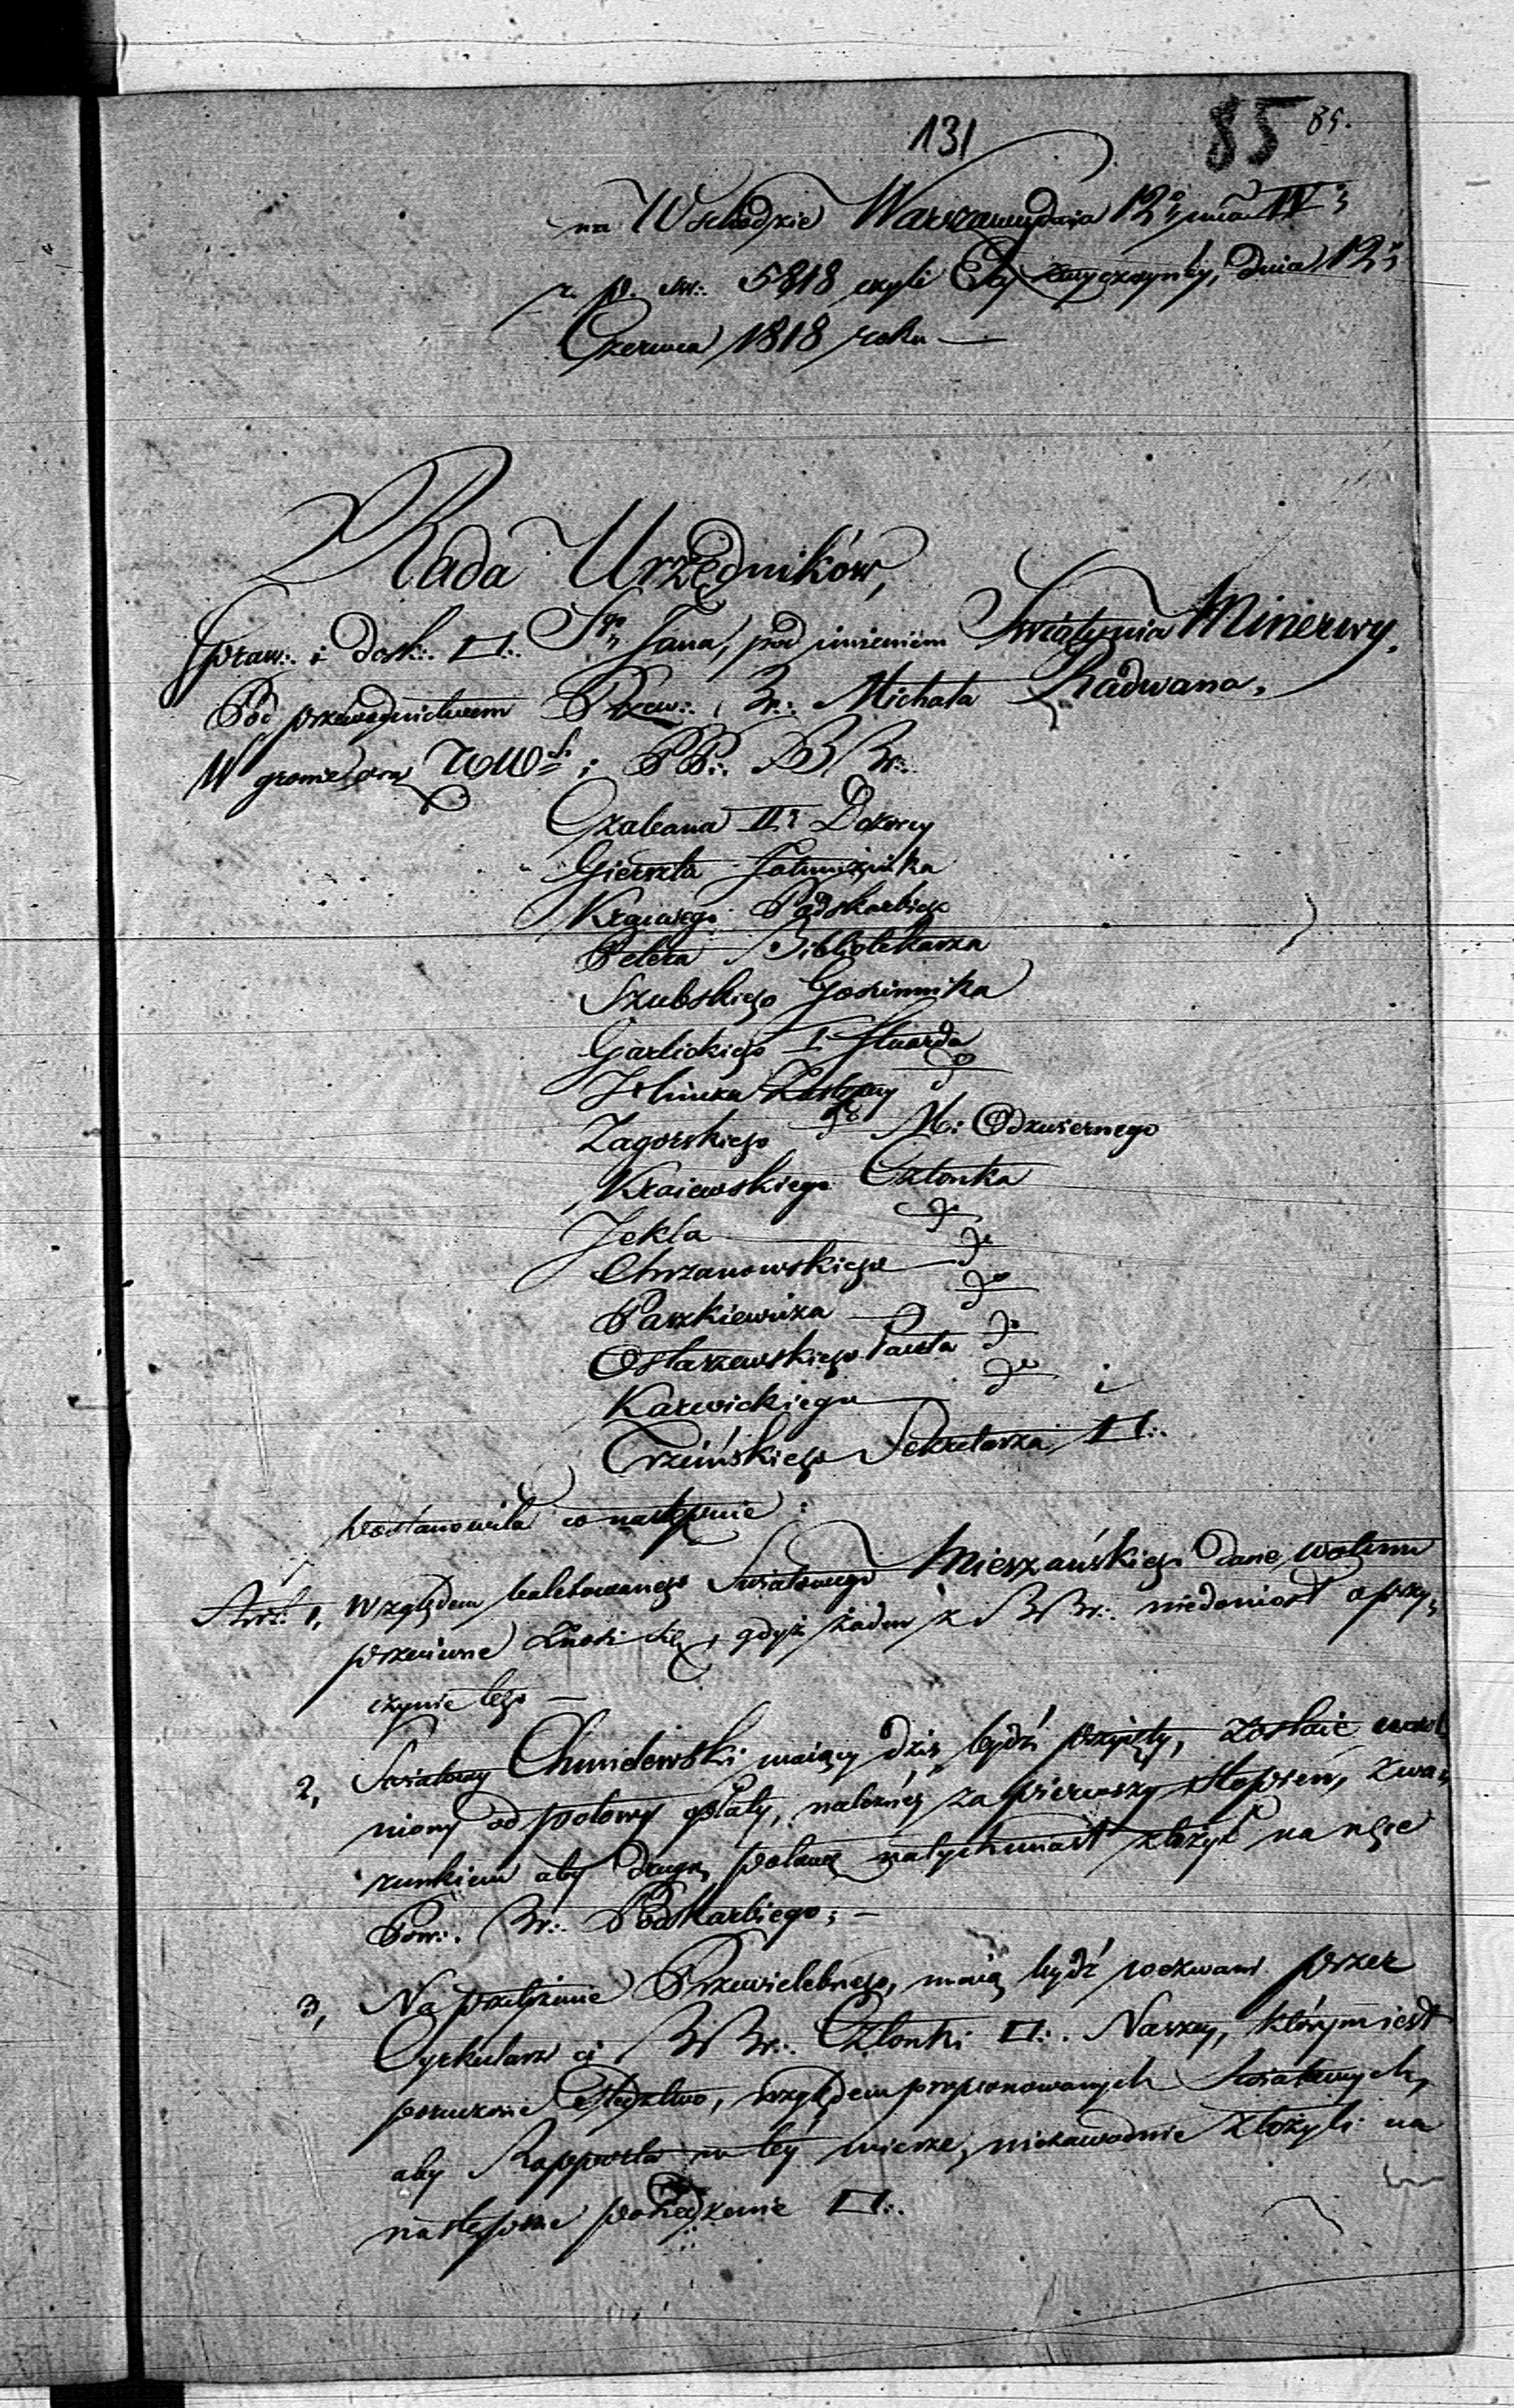 131
85 85.
na Wschodzie Warszawy dnia 12: mca IV:
r. p. św: 5818 czyli Ery zwyczayney, dnia 12:
Czerwca 1818 roku —
Rada Urzędników,
Spraw:. i dosk:. □:. Sgo Jana, pod imieniem Swiątynia Minerwy.
Pod przewodnictwem Przew:. Br:. Michała Radwana.
W gronie i PP:. BBr:.
Czabana II: Dozorcy
Gierszta Jałmużnika
Kraiewego Podskarbiego
Petera Bibliotekarza
Szubskiego Gościnnika
Garlickiego I Stuarda
Zastępcy do
Zagorskiego do M: Odzwiernego
Kraiewskiego Członka
Jekla do
Chrzanowskiego do
Paszkiewicza do
Ostaszewskiego Pawła do
Karwickiego do i
Trzcińskiego Sekretarza □:.
postanowiła co następuie:
Art: 1, Względem baletowanego Swiatowego Mieszańskiego dane wotum
przeciwne znosi się, gdyż żaden z BBr:. niedoniósł o przy-
czynie tego —
2, Swiatowy Chmielewski maiący dziś bydź przyięty, zostaie uwol
niony od połowy opłaty, należnéy za pierwszy stopień, z wa-
runkiem aby drugą połowę natychmiast złożył na ręce
Pow:. Br:. Podskarbiego; —
3, Na przełożenie Przewielebnego, maią bydź wezwani przez
Cyrkularz ci BBr:. Członki □:. Naszey, którym iest
poruczone śledztwo, względem proponowanych Swiatowych,
aby Rapporta w tey mierze, niezawodnie złożyli na
następne posiedzenie □:.